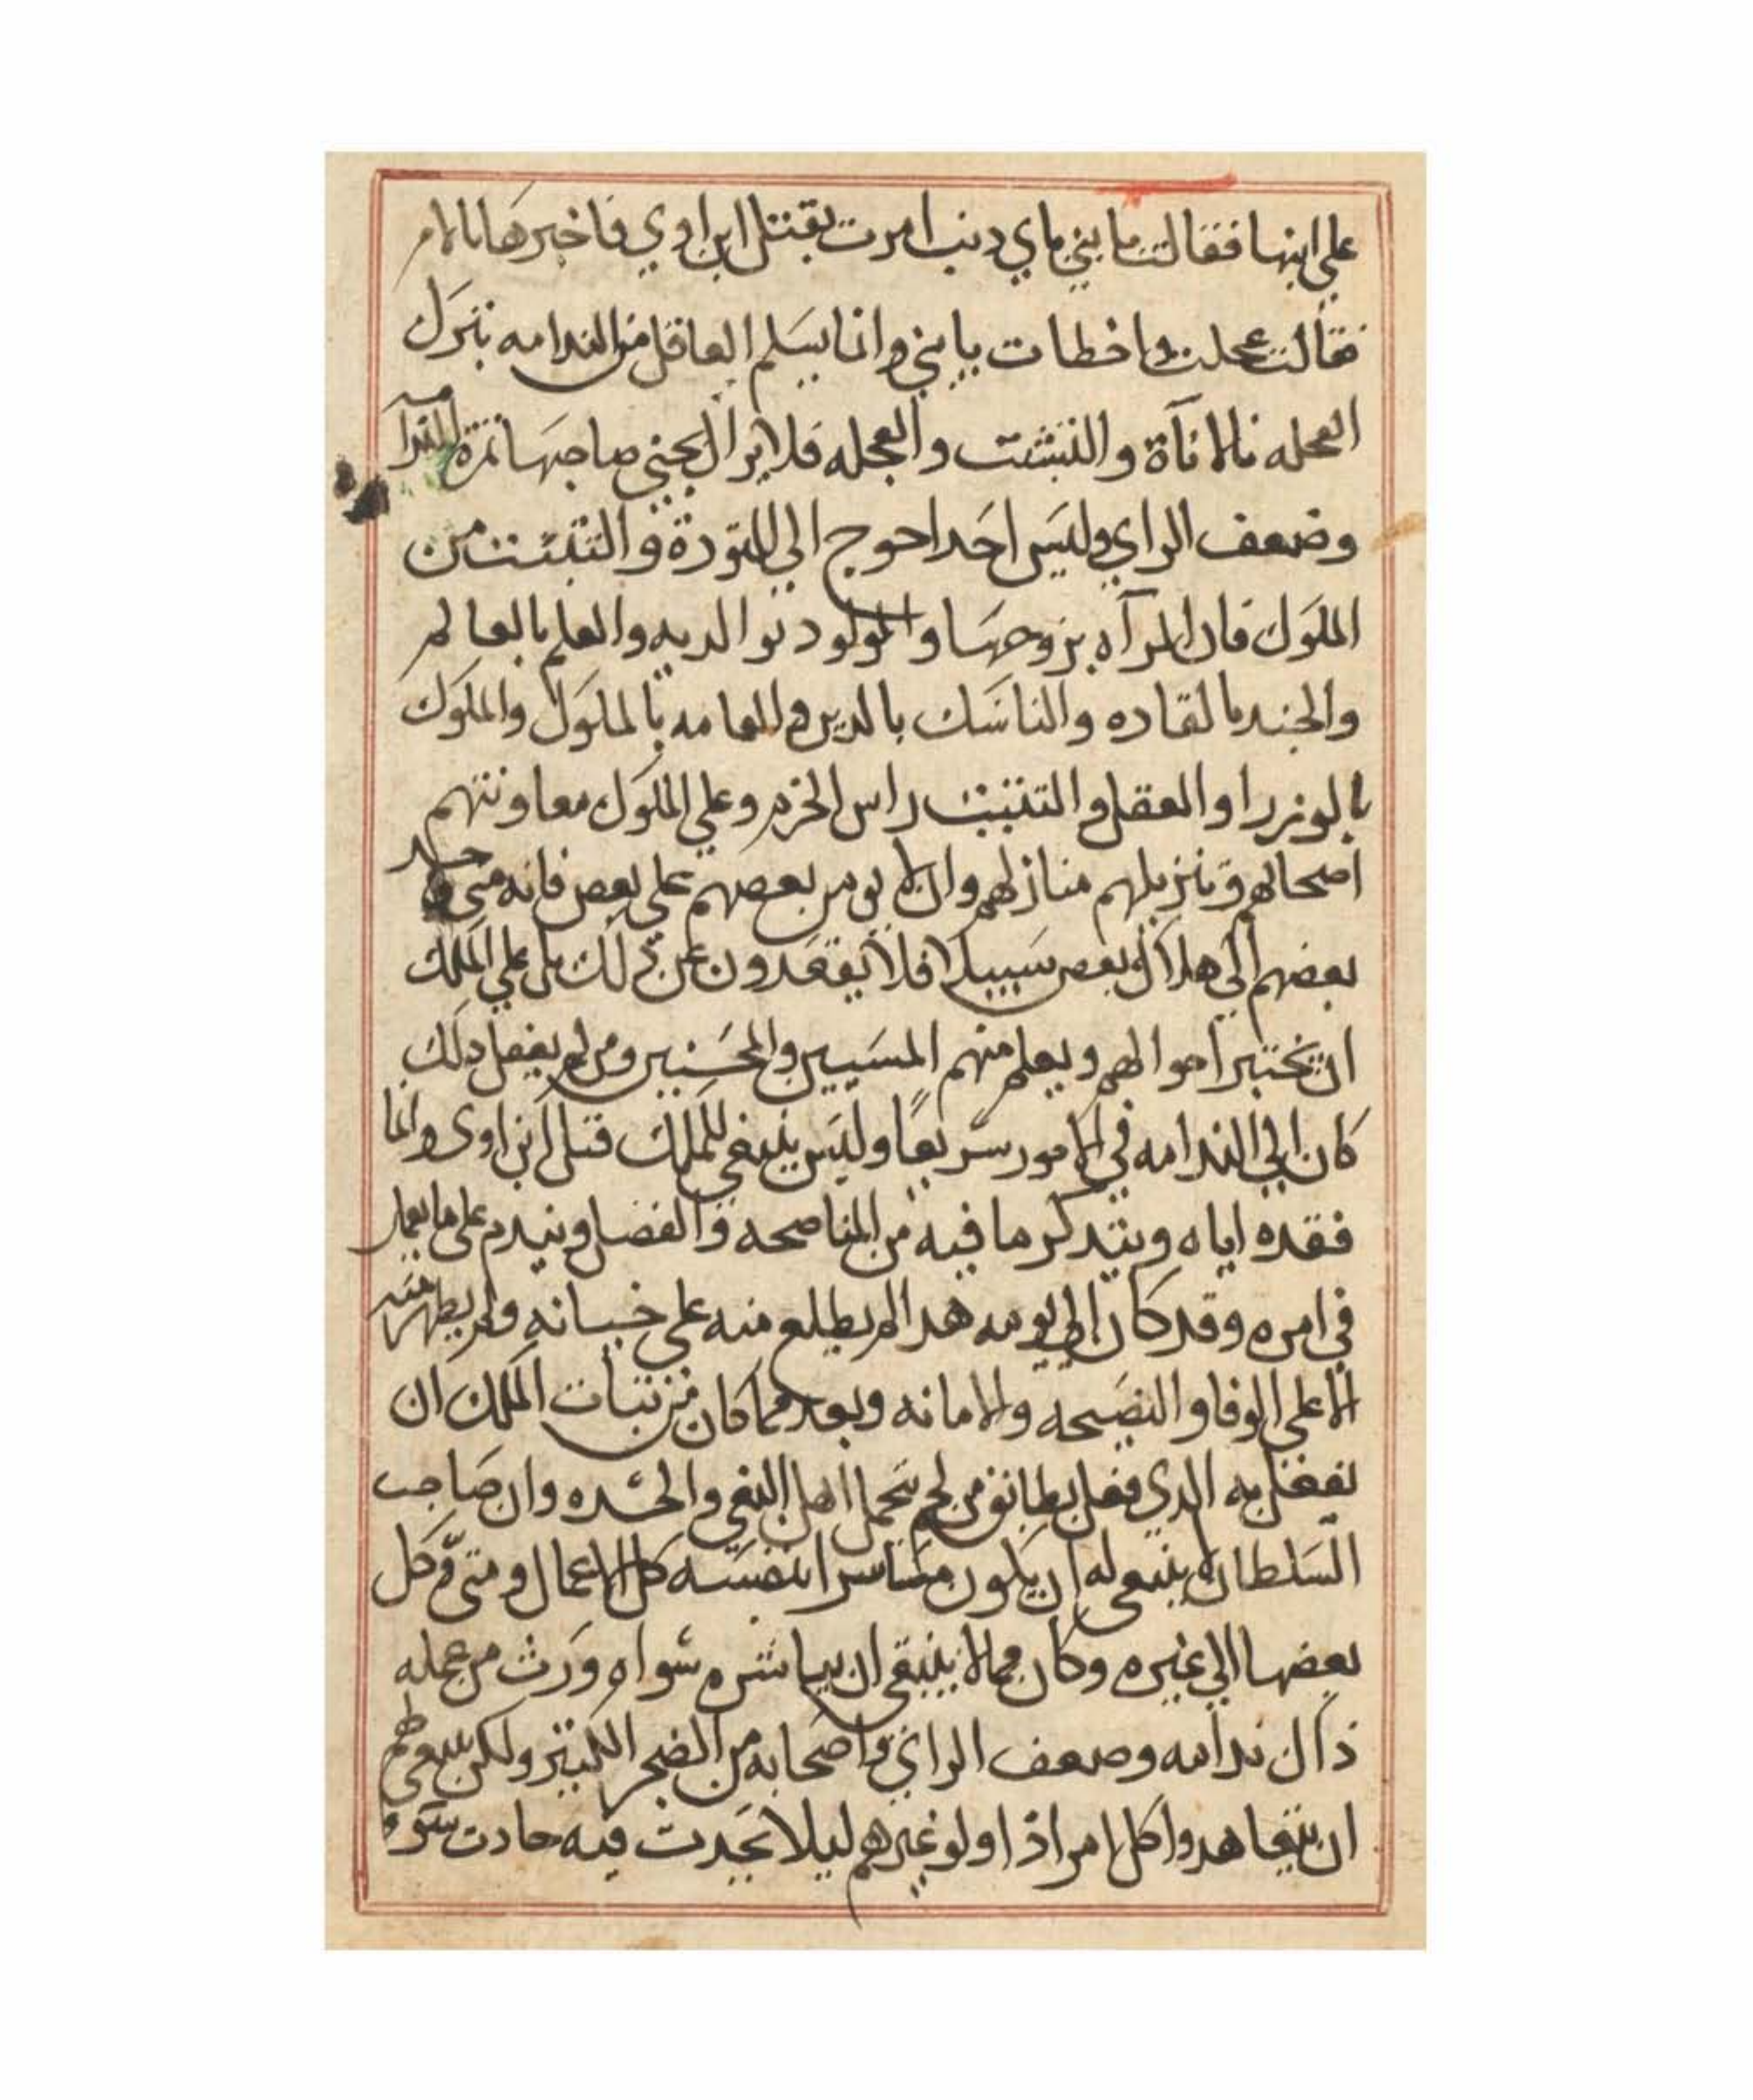 علي ابنها فقالت يا بني باي دنب امرت بقتل ابن اوي فاخبرها بالامر
فقالت عجلت واخطات يا بني وانما يسلم العاقل من الندامه بترك
العجله بالاناة والتثبت والعجله فلا يزال يجني صاحبها ثمرة الندامه
وضعف الراي وليس احدا احوج الي التؤدة والتثبت من
الملوك فان المرآه بزوجها والمولود بوالديه والعلم بالعالم
والجند بالقاده والناسك بالدين والعامه بالملوك والملوك
بالوزرا والعقل والتثبت راس الحزم وعلي الملوك معاونتهم
اصحابهم وتنزيلهم منازلهم وان لا يومن بعضهم علي بعض فانه متي وجد
بعضهم الي هلاك بعض سبيلا فلا يقعدون عن ذلك بل علي الملك
ان يختبر احوالهم ويعلم منهم المسيين والمحسنين ومن لم يفعل دلك
كان الي الندامه في الامور سريعًا وليس ينبغي للملك قتل ابن اوي وانما
فقده اياه ويتدكر ما فيه من المناصحه والفضل ويندم علي ما يعمل
في امره وقد كان الي يومه هدا لم يطلع منه علي خيانه ولم يظهر منه
الا علي الوفا والنصيحه والامانه وبعد فما كان من تبات الملك ان
يفعل به الدي فعل بطابق من لحم تحمل اهل البغي والحسده وان صاحب
السلطان لا ينبغي له ان يكون مباشرا بنفسه كل الاعمال ومتي وكل
بعضها الي غيره وكان مما لا ينبغي ان يباشره سواه ورث من عمله
ذاك ندامه وضعف الراي واصحابه من الضجر الكبير ولكن ينبغي لهم
ان يتعاهدوا كل امر اذا ولو غيرهم ليلا يحدث فيه حادت سوء